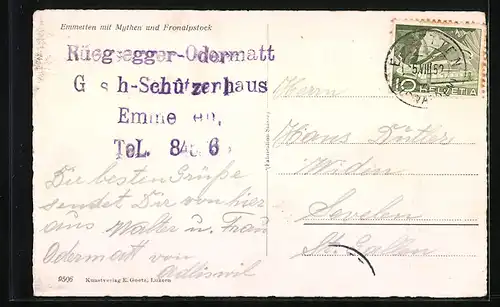 Emmetten mit Mythen und Fronalpstock
Rüegsegger-Odermatt
G s h-Schützenhaus
Emme en,
TeL. 84 6
Die besten Grüße
sendet Dir von hier
aus Walter u. Frau
Odermatt von
Adliswil
9506 Kunstverlag E. Goetz, Luzern
5.VIII.52
10 HELVETIA
Herrn
Hans Dütler
Widen
Sevelen
St. Gallen